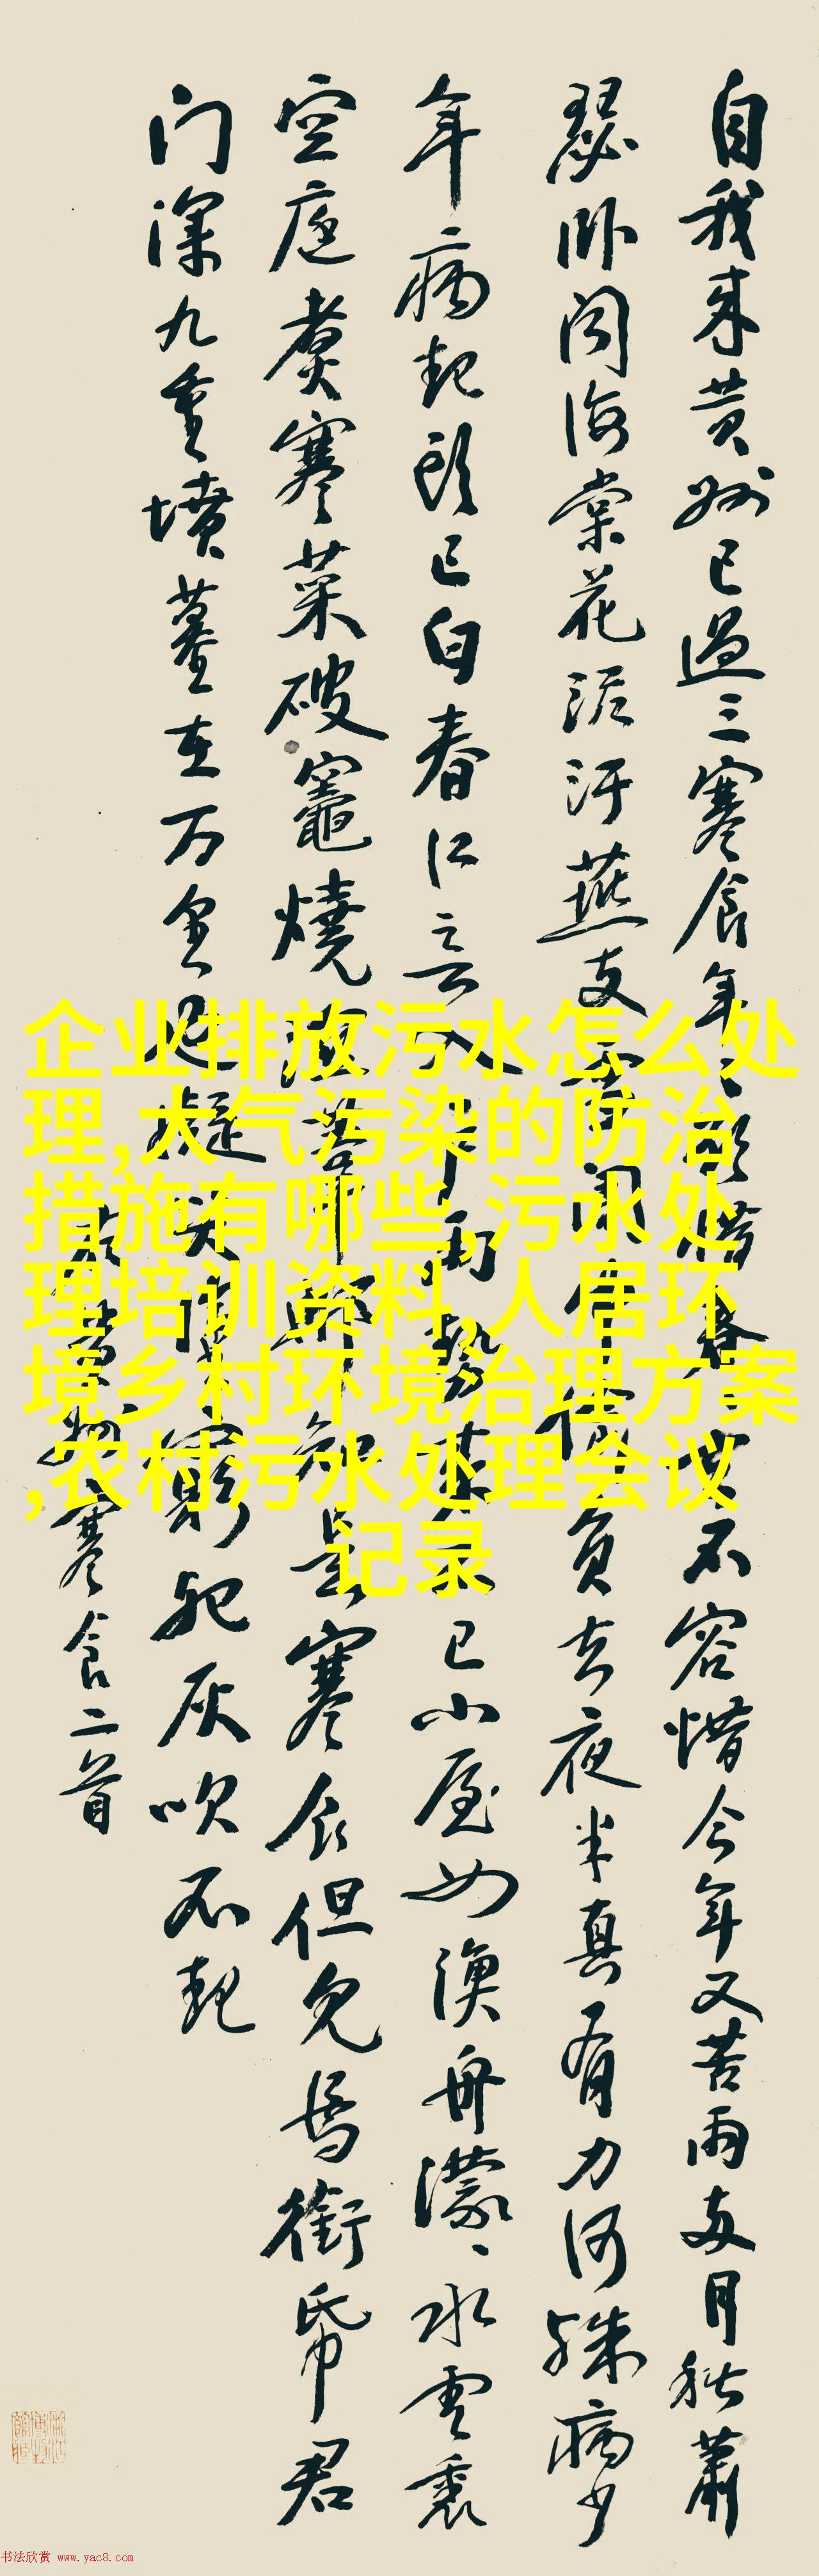 自我来黄州已過三寒食年〻欲惜春春去不容惜今年又苦雨两月秋蕭
瑟卧闻海棠花泥污燕支雪闇中偷負去夜半真有力何殊病少
年病起头已白春江入户雨勢来不已小屋如漁舟濛〻水雲裏
空庖煮寒菜破竈燒湿苇那知是寒食但見烏銜帋君
门深九重墳墓在万里也擬哭塗窮死灰吹不起
右黄州寒食二首
企业排放污水怎么处
理,大气污染的防治
措施有哪些,污水处
理培训资料,人居环
境乡村环境治理方案
,农村污水处理会议
记录
书法欣赏 www.yac8.com